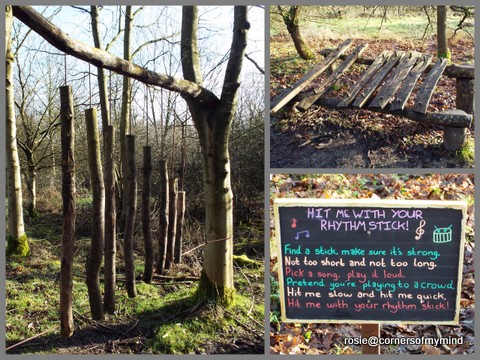 HIT ME WITH YOUR
RHYTHM STICK!
Find a stick, make sure it's strong.
Not too short and not too long.
Pick a song, play it loud.
Pretend you're playing to a crowd.
Hit me slow and hit me quick,
Hit me with your rhythm stick!
rosie@cornersofmymind